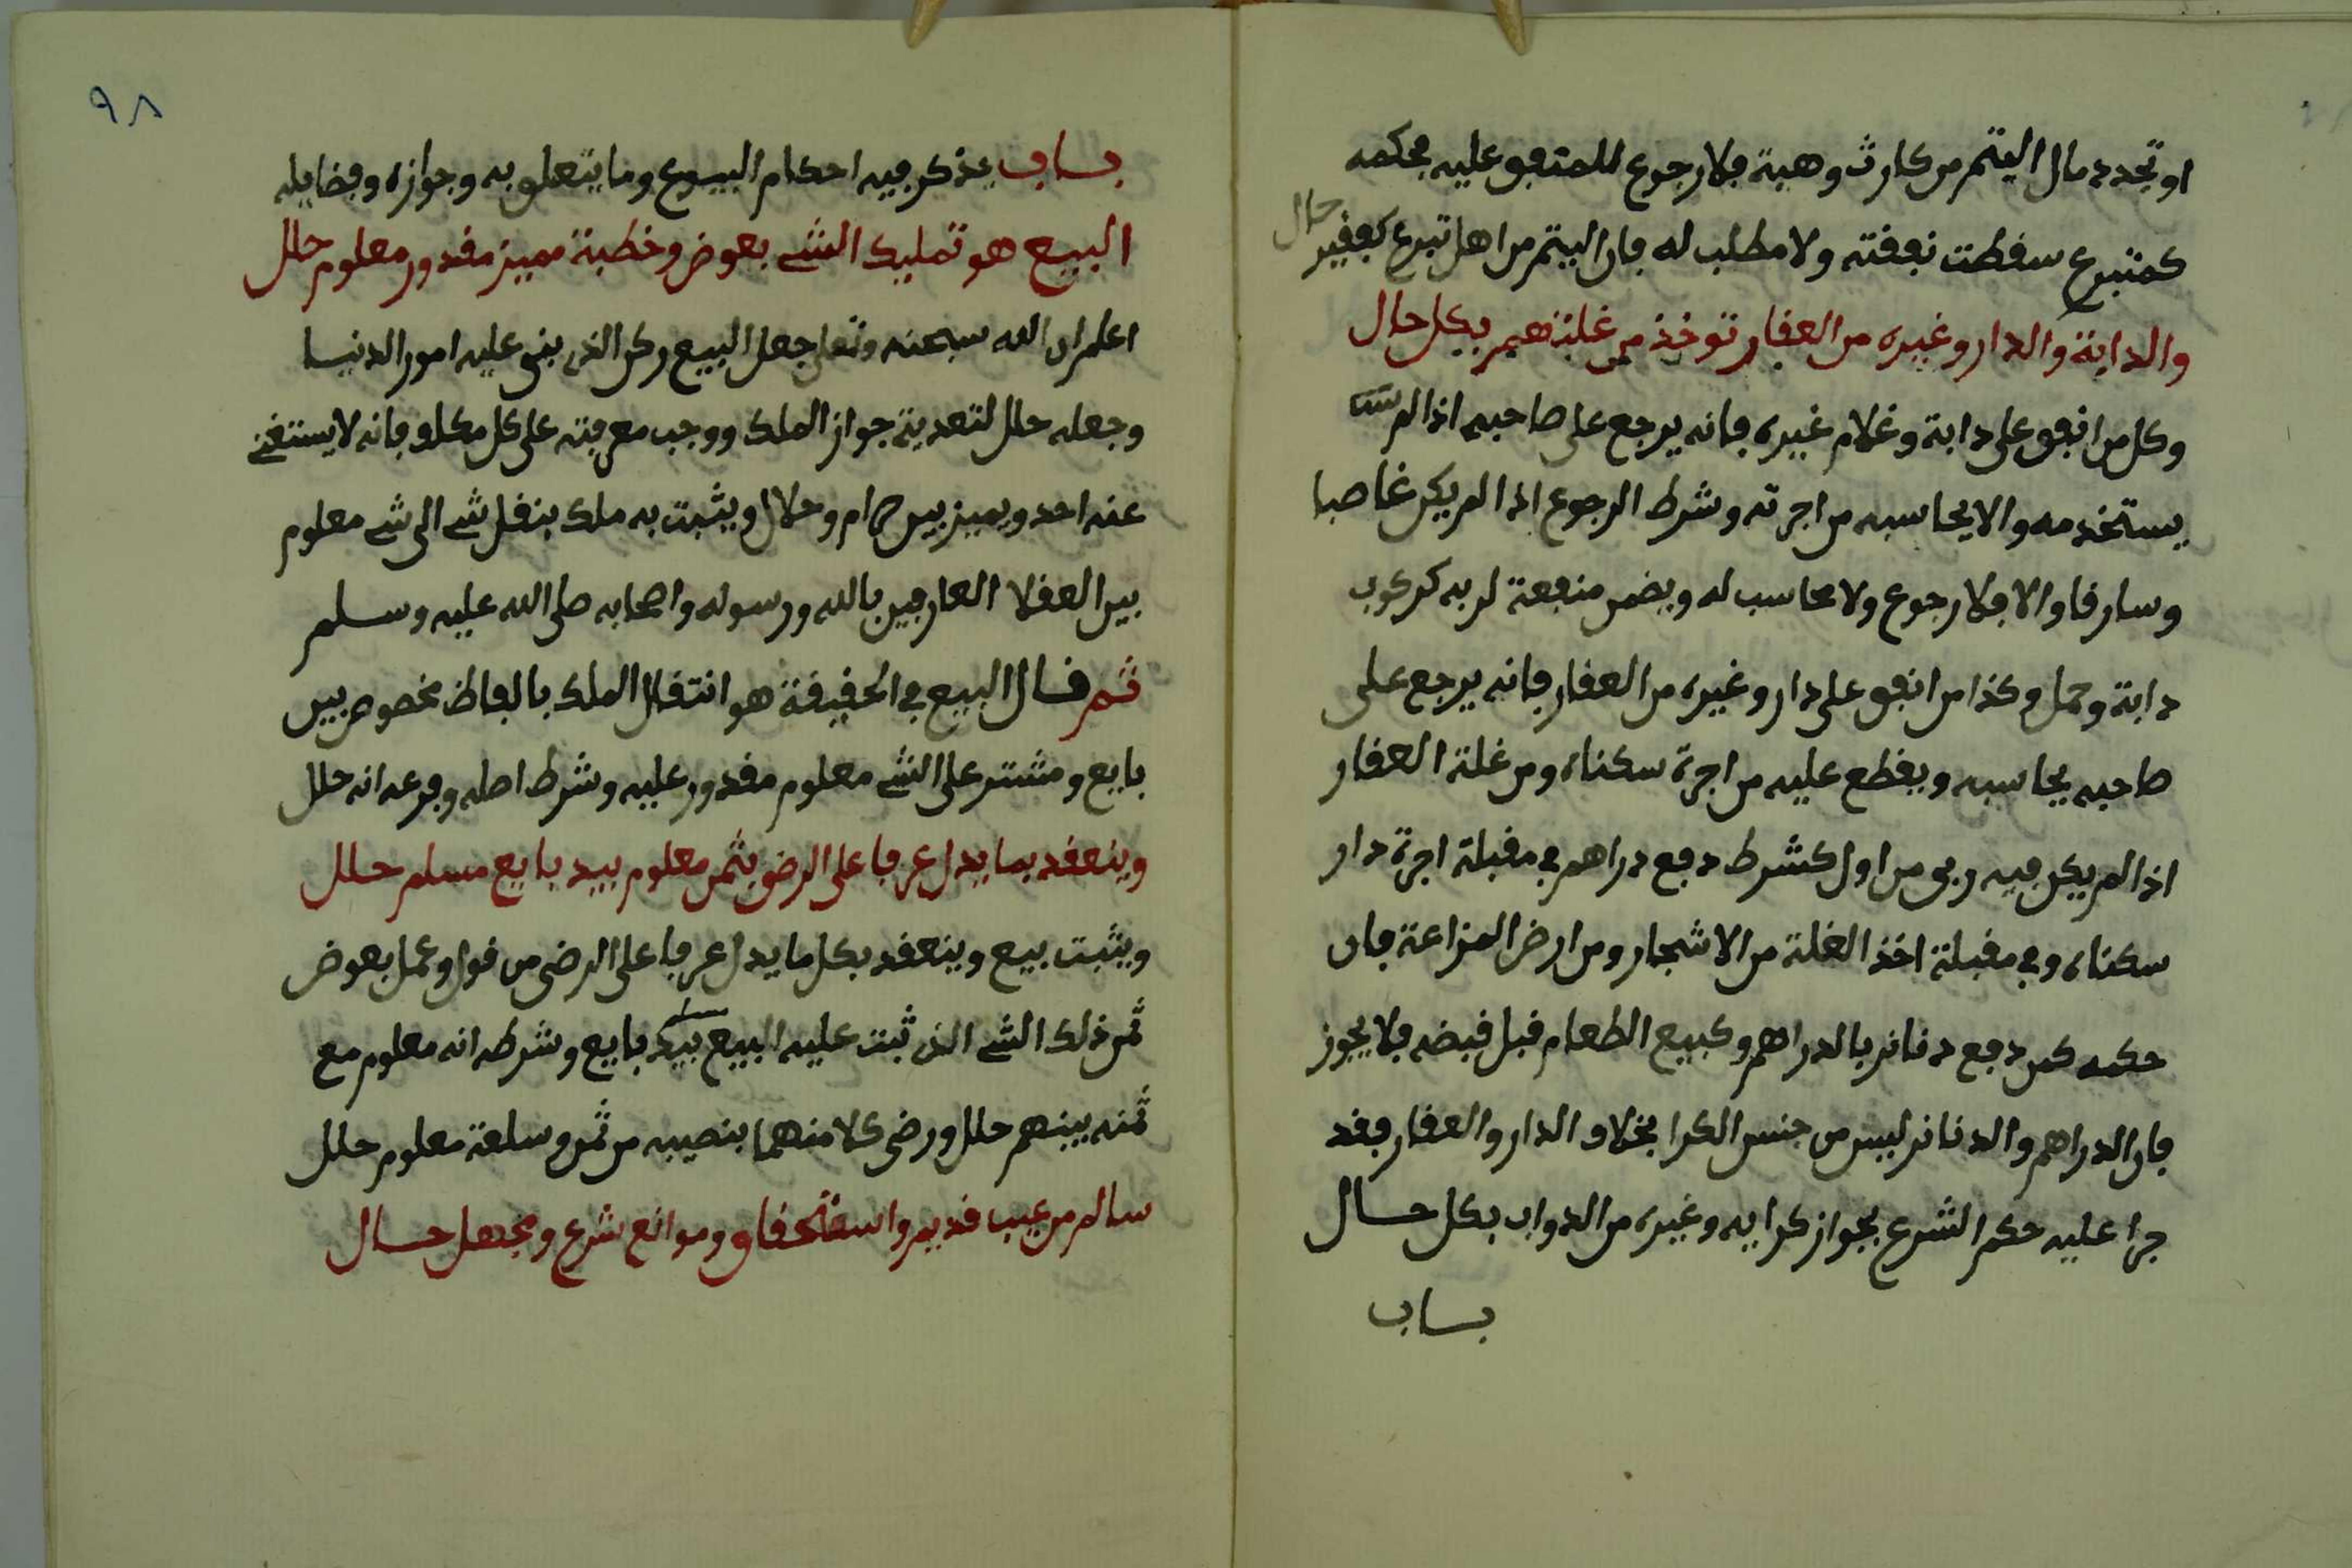 او تجدد مال اليتم من كارث وهبة فلا رجوع للمنفق عليه بحكمه
كمتبرع سقطت نفقته ولا مطلب له فان اليتم من اهل تبرع كفقير حال
والدابة والدار وغيره من العقار توخذ من غلتهم بكل حال
وكل من انفق على دابة وغلام غيره فانه يرجع على صاحبه اذا لم
يستخدمه والا يحاسبه من اجرته وشرط الرجوع اذا لم يكن غاصبا
وسارقا والا فلا رجوع ولا محاسب له ويضمن منفعة لربه كركوب
دابة وحمل وكذا من انفق على دار وغيره من العقار فانه يرجع على
صاحبه يحاسبه ويقطع عليه من اجرة سكناه ومن غلة العقار
اذا لم يكن فيه ربى من اول كشرط دفع دراهم في مقبلة اجرة دار
سكناه وفي مقبلة اخذ الغلة من الاشجار ومن ارض المزاعة فان
حكمه كمن دفع دنانر بالدراهم وكبيع الطعام قبل قبضه فلا يجوز
فان الدراهم والدنانر ليس من جنس الكرا بخلاف الدار والعقار فقد
جرا عليه حكم الشرع بجواز كرايه وغيره من الدواب بكل حال
باب
٩٨
باب يذكر فيه احكام البيوع وما يتعلق به وجوازه وفضايله
البيع هو تمليك الشي بعوض وخطبة مميز مقدور معلوم حلل
اعلم ان الله سبحنه وتعلى جعل البيع ركن الذي بنى عليه امور الدنيا
وجعله حلل لتعدية جواز الملك ووجب معرفته على كل مكلف فانه لا يستغني
عنه احد ويميز بين حرام وحلال ويثبت به ملك بنقل شي الى شي معلوم
بين العقلا العارفين بالله ورسوله واصحابه صلى الله عليه وسلم
ثم قال البيع في الحقيقة هو انتقال الملك بالفاظ مخصوص بين
بايع ومشتر على الشي معلوم مقدور عليه وشرط اصله وفرعه انه حلل
وينعقد بما يدل عرفا على الرضى بثمن معلوم بيد بايع مسلم حلل
ويثبت بيع وينعقد بكل ما يدل عرفا على الرضى من قول وعمل بعوض
ثمن ذلك الشي الذي ثبت عليه البيع بيد بايع وشرطه انه معلوم مع
ثمنه بينهم حلل ورضى كلا منهما بنصيبه من ثمن وسلعة معلوم حلل
سالم من عيب قديم واستحقاق وموانع شرع ومجهل حال